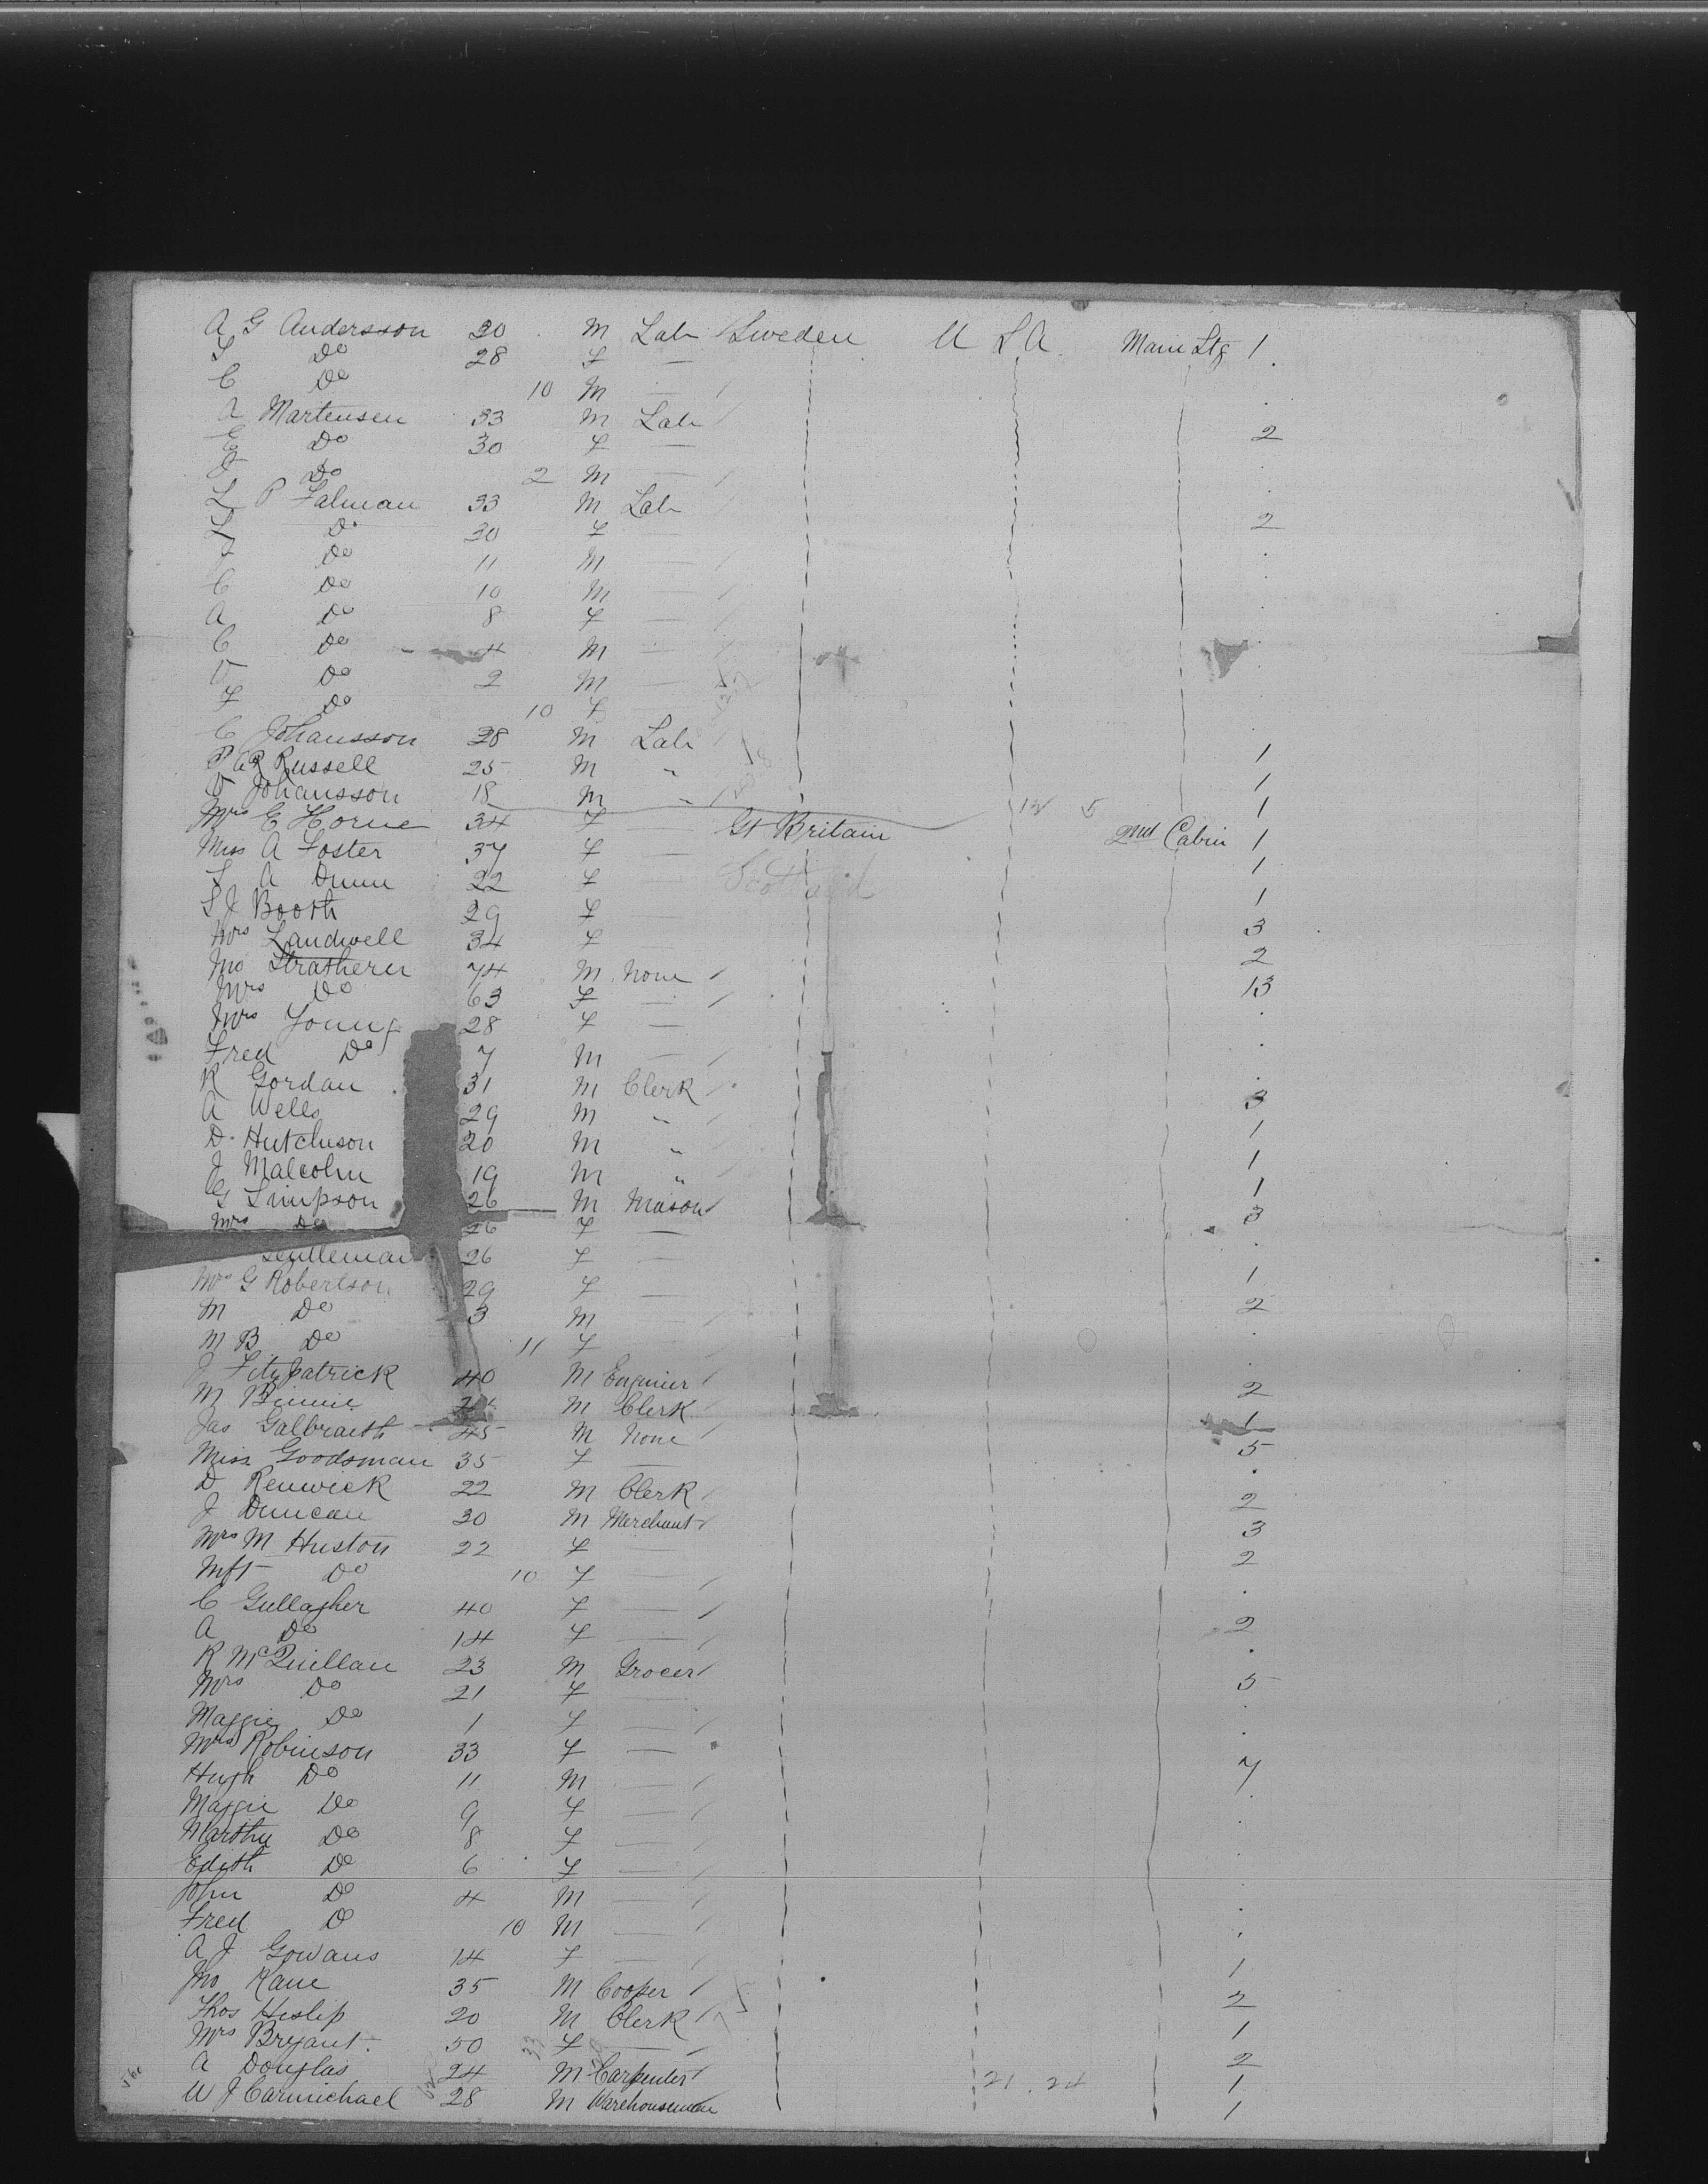 A G Andersson 30 M Lab Sweden U S A Main Stg 1
S Do 28 F —
C Do 10 M —
A Martensen 33 M Lab 2
E Do 30 F —
J Do 2 M —
L P Falman 33 M Lab 2
S Do 30 F —
J Do 11 M —
C Do 10 M —
A Do 8 F —
C Do 4 M —
V Do 2 M —
F Do 10 F —
C Johansson 28 M Lab 1
P C R Russell 25 M " 1
V Johansson 18 M " 12 5 1
Mrs E Horne 34 F — Gt Britain 2nd Cabin 1
Miss A Foster 37 F — Scotland 1
S A Dunn 22 F — 1
S J Booth 29 F 3
Mrs Landwell 34 F 2
Jno Strathern 74 M None 13
Mrs Do 63 F —
Mrs Young 28 F —
Fred Do 7 M —
R Gordan 31 M Clerk 3
A Wells 29 M " 1
D. Hutchison 20 M " 1
J Malcolm 19 M " 1
G Simpson 26 M Mason 3
Mrs Do 26 F —
Gentleman 26 F — 1
Mrs G Robertson 29 F — 2
M Do 3 M —
M B Do 11 F
J Fitzpatrick 40 M Enginier 2
M Binnie M Clerk 1
Jas Galbraith 45 M None 5
Miss Goodsman 35 F —
D Renwick 22 M Clerk 2
J Duncan 30 M Merchant 3
Mrs M Huston 22 F — 2
Mft Do 10 F —
C Gullagher 40 F — 2
A Do 14 F —
R McQuillan 23 M Grocer 5
Mrs Do 21 F —
Maggie Do 1 F —
Mrs Robinson 33 F — 7
Hugh Do 11 M —
Maggie Do 9 F —
Martha Do 8 F —
Edith Do 6 F —
John Do 4 M —
Fred Do 10 M —
A J Gowans 14 F — 1
Jno Kane 35 M Cooper 2
Thos Hislip 20 M Clerk 1
Mrs Bryant. 50 F — 2
A Douglas 24 M Carpenter 21 . 24 1
W J Carmichael 28 M Warehouseman 1